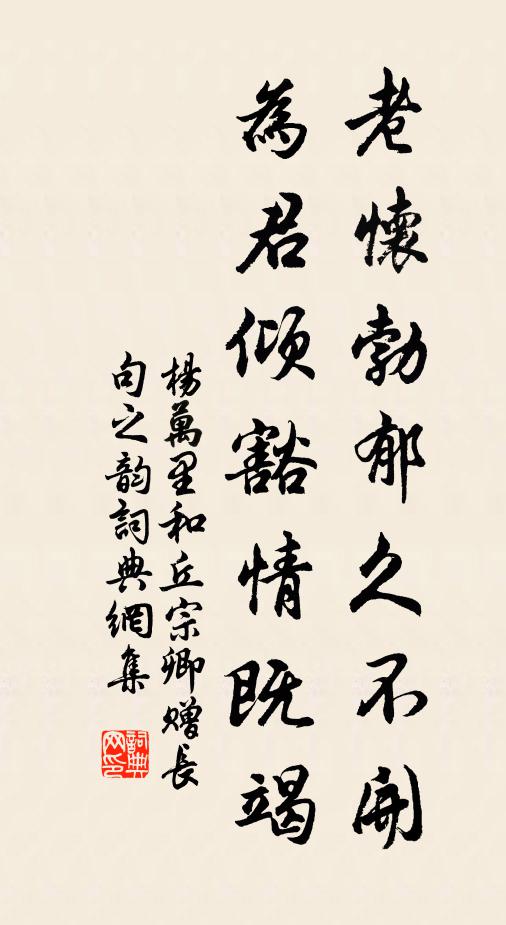 老懷勃郁久不開
為君傾豁情既竭
楊萬里和丘宗卿贈長
句之韵詞典網集
詞典
网印